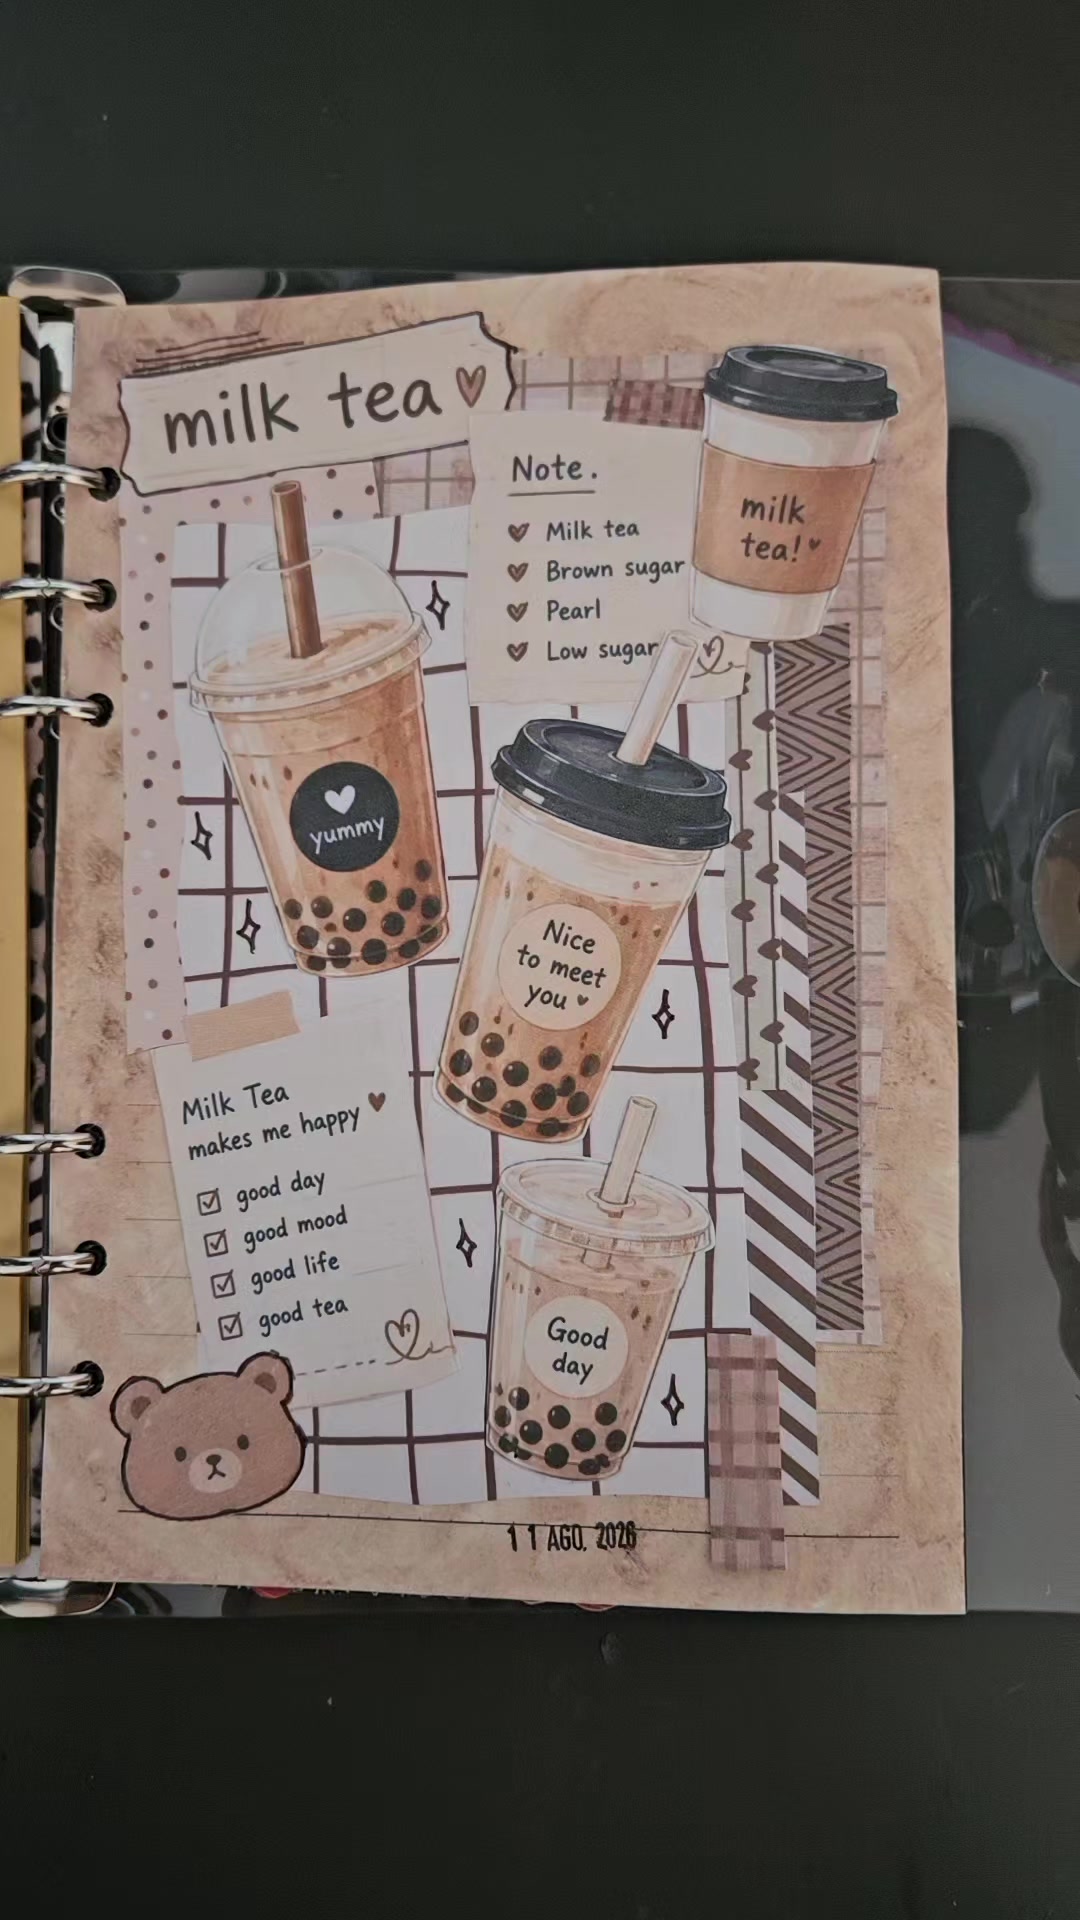 milk tea
Note.
Milk tea
Brown sugar
Pearl
Low sugar
milk
tea!
yummy
Nice
to meet
you
Milk Tea
makes me happy
good day
good mood
good life
good tea
Good
day
11 AGO. 2026